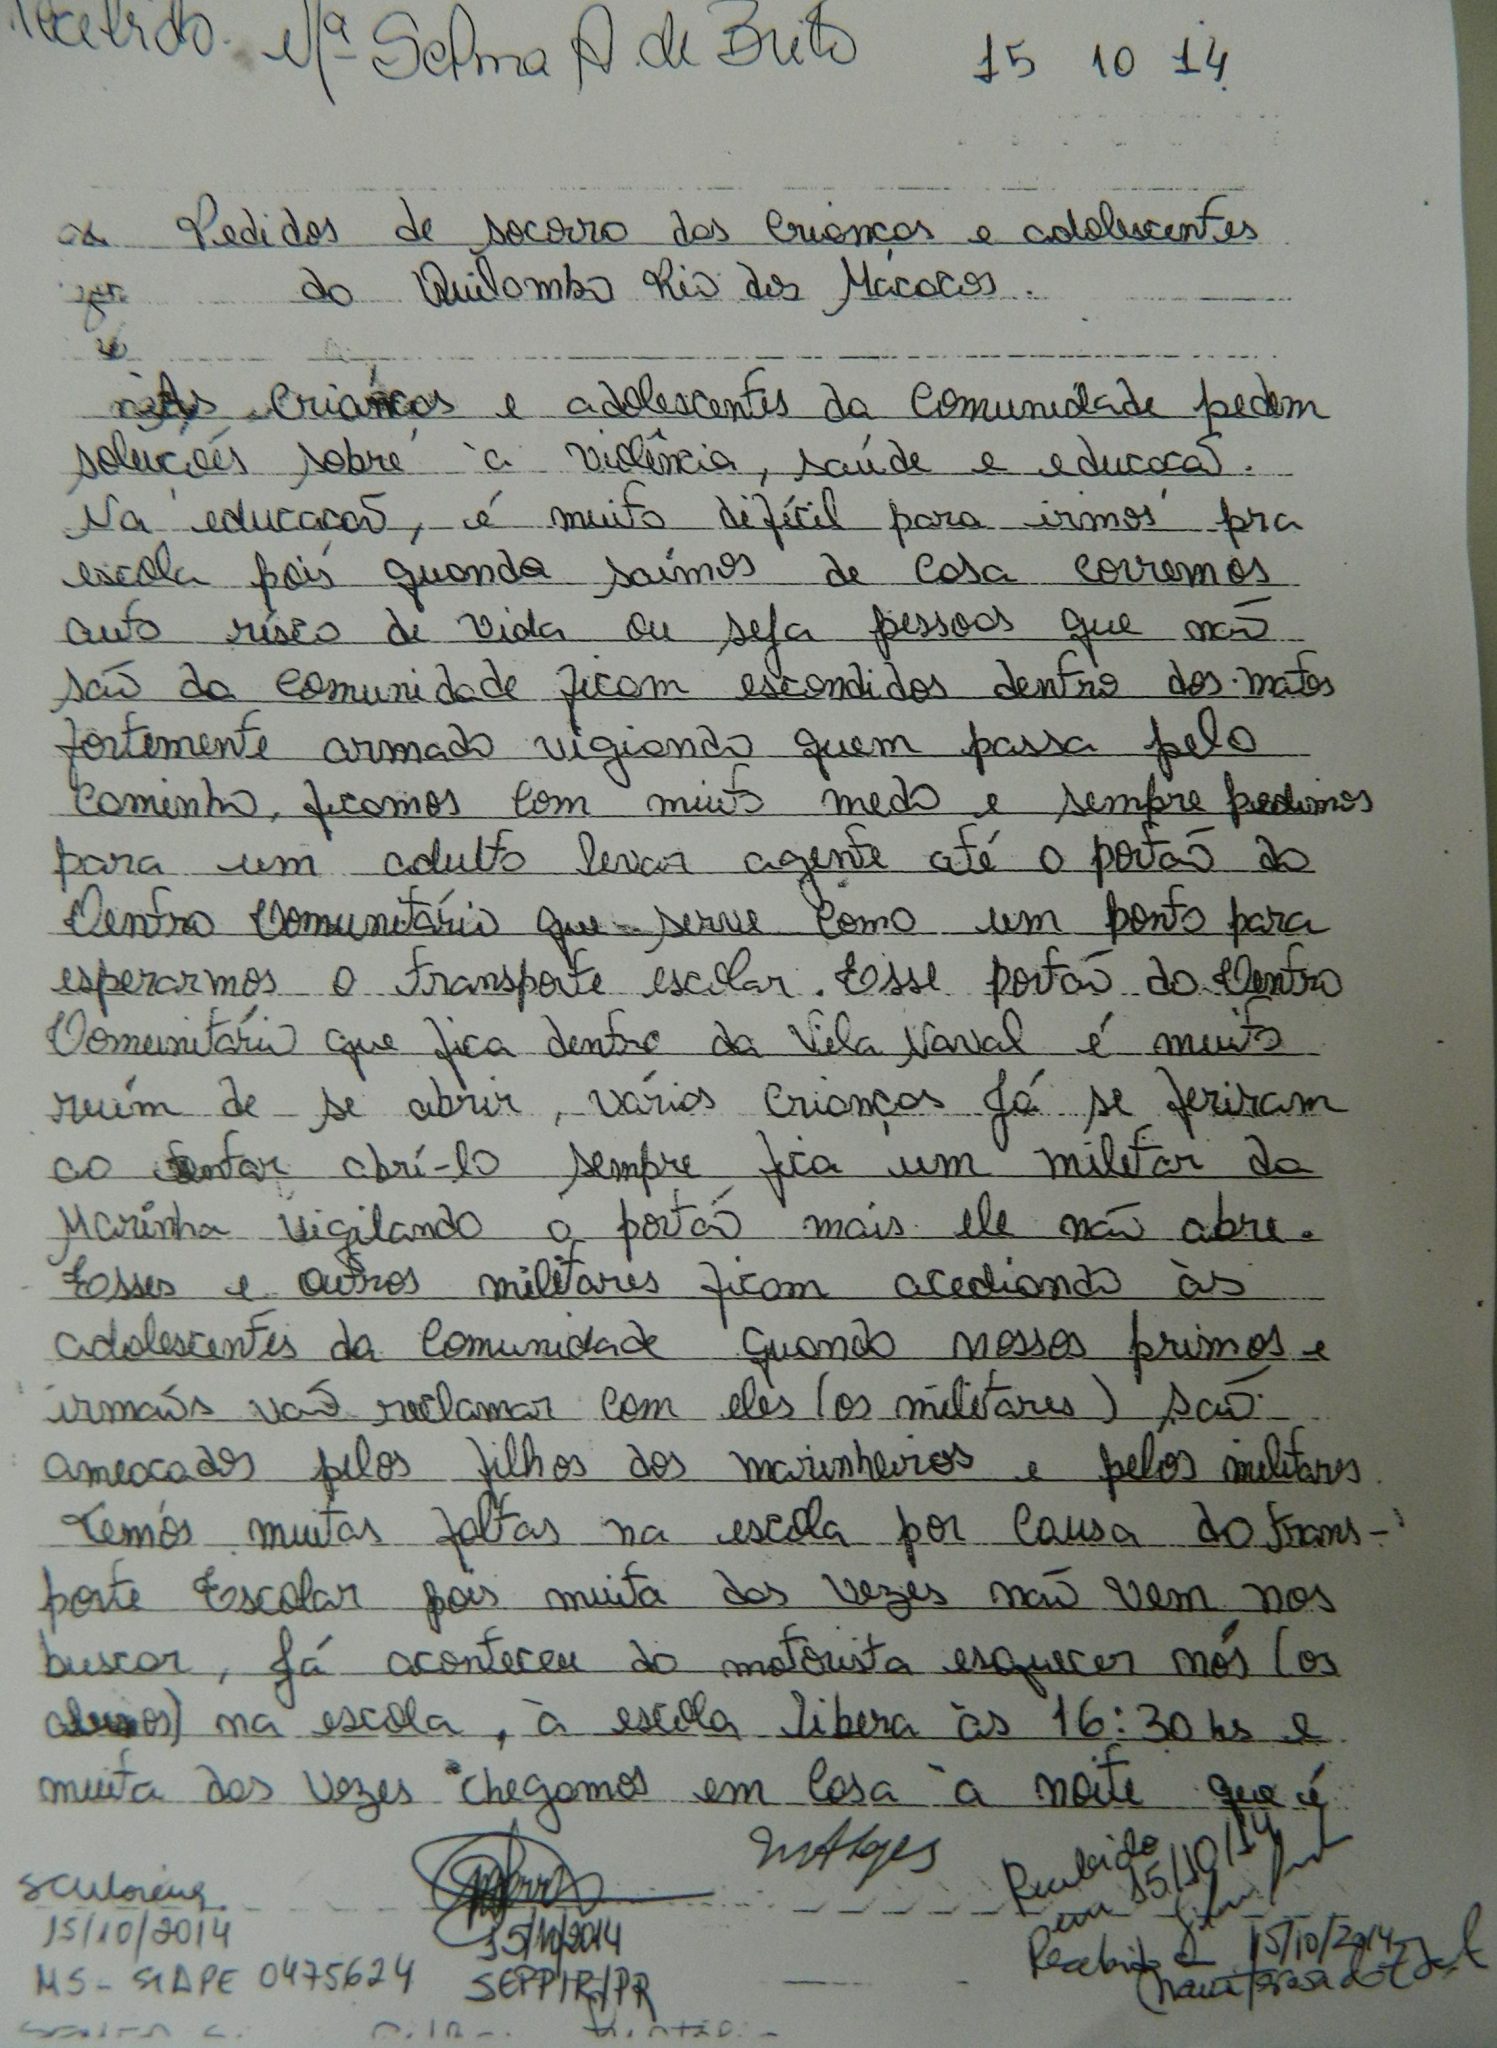 Mª Selma A. de Brito 15 10 14
Pedidos de socorro das crianças e adolescentes
do Quilombo Rio dos Mácacos.
As crianças e adolescentes da Comunidade pedem
soluções sobre à violência, saúde e educacão.
Na educacão, é muito difícil para irmos pra
escola pois quando saímos de Casa corremos
auto risco de vida ou seja pessoas que não
são da Comunidade ficam escondidos dentro dos matos
fortemente armado vigiando quem passa pelo
Caminho, ficamos Com muito medo e sempre pedimos
para um adulto levar agente até o portão do
Centro Comunitário que serve Como um ponto para
esperarmos o transporte escolar. Esse portão do Centro
Comunitário que fica dentro da Vila Naval é muito
ruím de se abrir, várias crianças Já se feriram
ao tentar abrí-lo sempre fica um militar da
Marinha vigilando o portão mais ele não abre.
Esses e outros militares ficam acediando às
adolescentes da Comunidade quando nossos primos e
irmaõs vão reclamar Com eles (os militares) são
ameacados pelos filhos dos marinheiros e pelos militares.
Temos muitas faltas na escola por Causa do trans-
porte Escolar pois muita das vezes não vem nos
buscar, Já aconteceu do motorista esquecer nós (os
alunos) na escola, à escola libera às 16:30 hs e
muita das vezes chegamos em Casa à noite que é
15/10/2014
MS - SIAPE 0475624
15/10/2014
SEPPIR/PR
Recebido
em 15/10/14
Recebido 15/10/2014